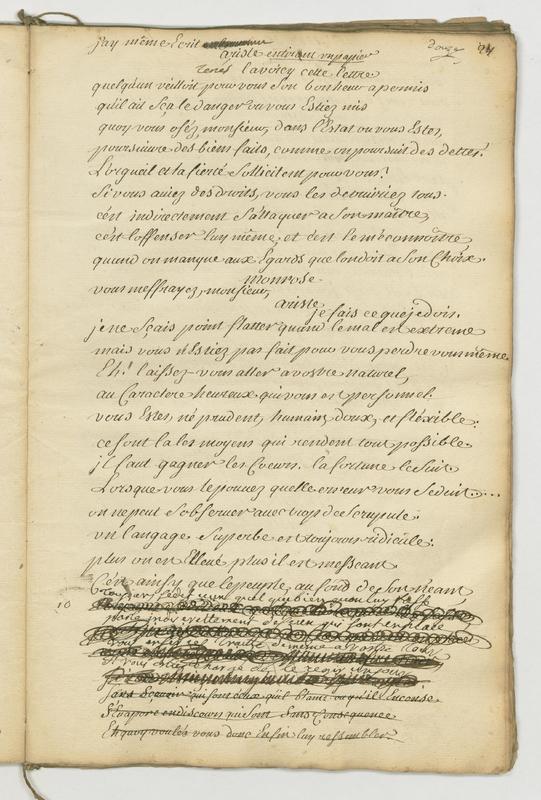 j'ay même Ecrit
ariste entirant un papier
Tenés lavoicy cette lettre
quelqu'un veilloit pour vous son bonheur a permis
qu'il ait sçû le danger ou vous Estiez mis
quoy vous osés, monsieur, dans l'Estat ou vous Estes,
poursuivre des bienfaits, comme on poursuit des dettes?
L'orgueil et la fierté sollicitent pour vous?
Si vous aviez des droits, vous les detruiriez tous.
c'est indirectement s'attaquer a son maître,
c'est l'offenser luy même, et c'est le méconnoître
quand on manque aux Egards que l'on doit a son Choix.
monrose
vous m'effrayez, monsieur,
ariste
je fais ce que je dois.
je ne sçais point flatter quand le mal est extreme
mais vous n'Estiez pas fait pour vous perdre vous même
Eh! laissez-vous aller a vostre naturel,
au Caractere heureux qui vous est personnel
vous Estes né prudent, humain, doux, et fléxible:
ce sont la les moyens qui rendent tout possible.
il faut gagner les Coeurs. la fortune le suit
Lorsque vous le pouvez quelle erreur vous seduit....
on ne peut s'observer avec trop de scrupule:
un langage superbe est toujours ridicule:
plus on est Elevé plus il est messeant
C'est ainsy que le peuple, au fond de son neant
10
qui sont Enplace
de même a vostre
si vous
sans sçavoir qui sont ceux qu'il blame ou qu'il Encense
s'Evapore en discours qui sont sans Consequence
Et quoy voulés vous donc Enfin luy ressembler?